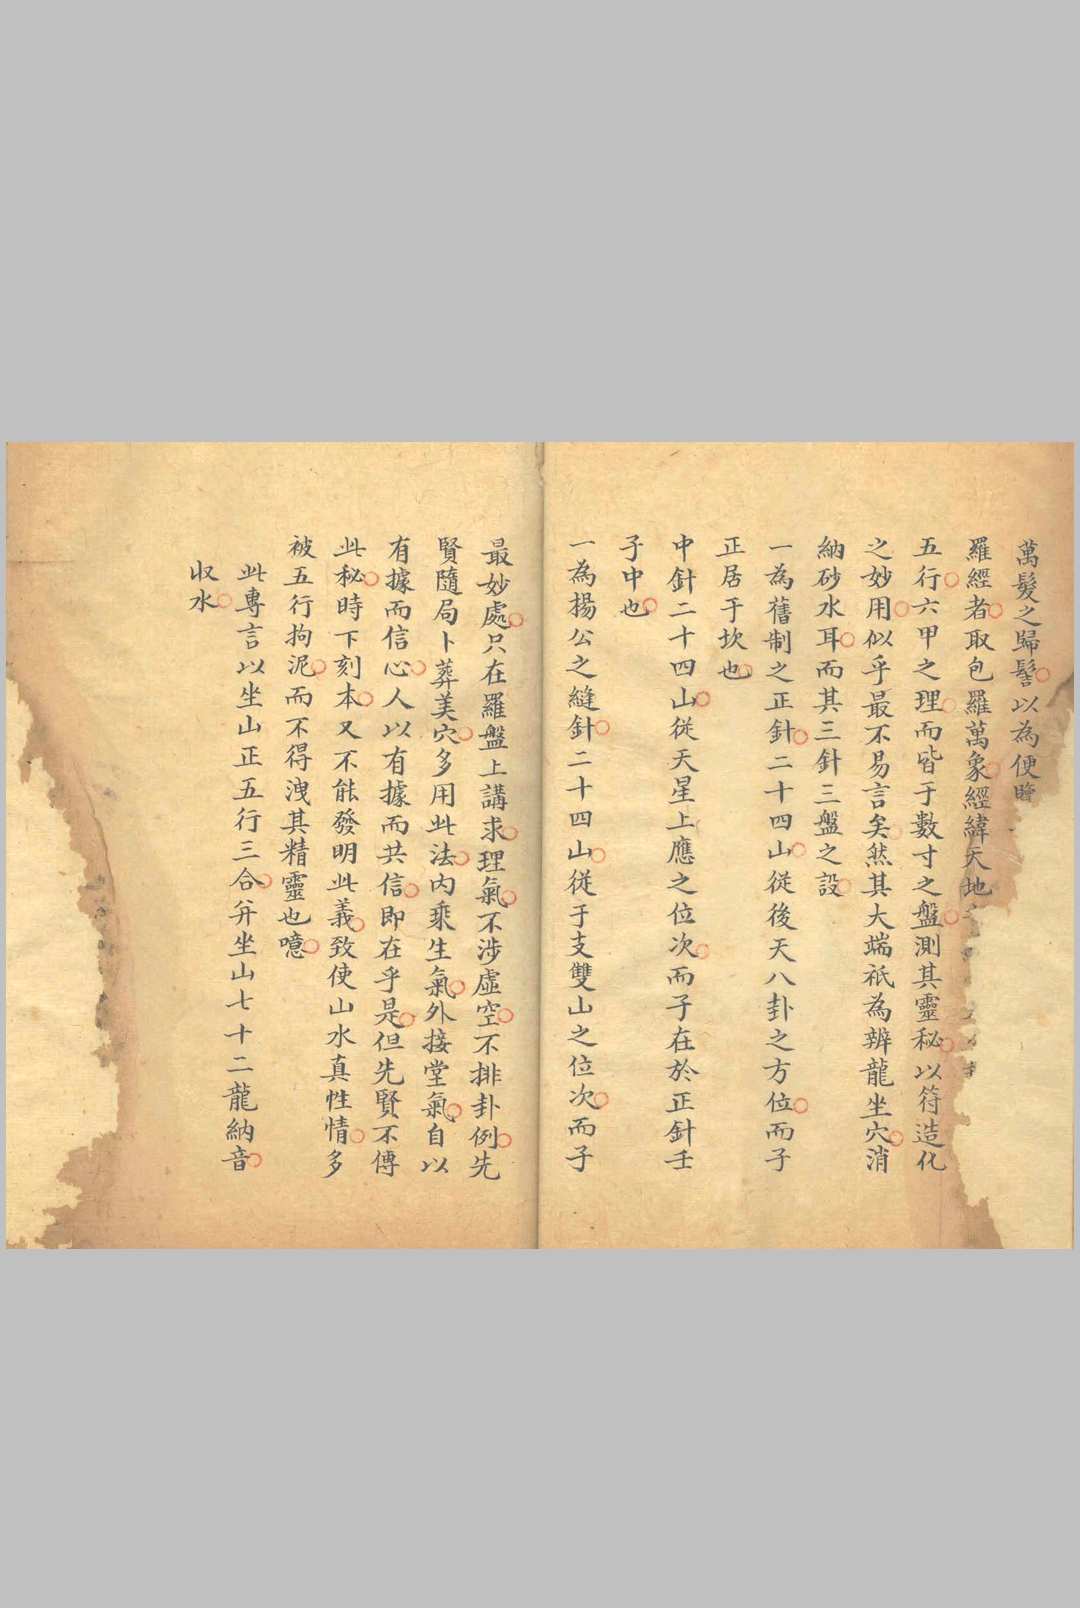 萬髮之歸髻以為便
羅經者取包羅萬象經緯天地
五行六甲之理而皆于數寸之盤測其靈秘以符造化
之妙用似乎最不易言矣然其大端祇為辨龍坐穴消
納砂水耳而其三針三盤之設
一為舊制之正針二十四山從後天八卦之方位而子
正居于坎也
中針二十四山從天星上應之位次而子在於正針壬
子中也
一為揚公之縫針二十四山從于支雙山之位次而子
最妙處只在羅盤上講求理氣不涉虛空不排卦例先
賢隨局卜葬美穴多用此法内乘生氣外接堂氣自以
有據而信心人以有據而共信即在乎是但先賢不傳
此秘時下刻本又不能發明此義致使山水真性情多
被五行拘泥而不得洩其精靈也噫
此專言以坐山正五行三合弁坐山七十二龍納音
収水